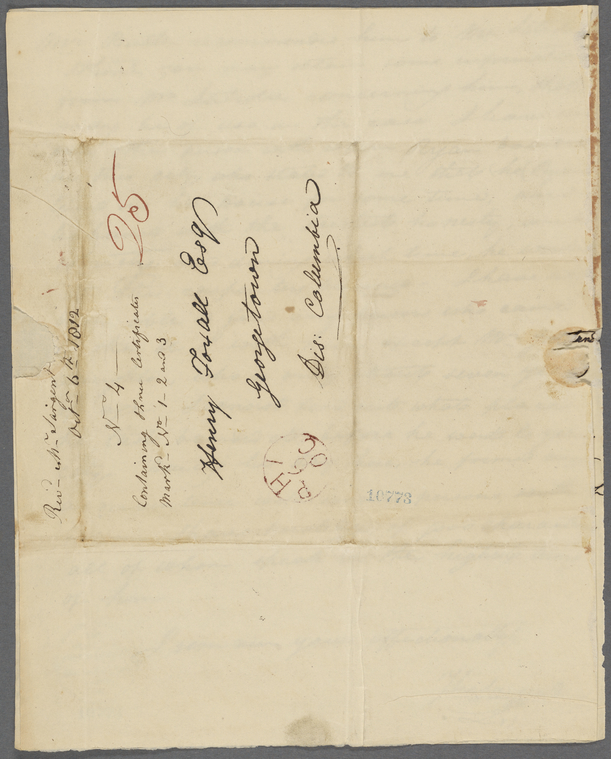 Revd Mr Sargent
Octr 6th 1812
25
No 4
Containing three Certificates
Mark No 1-2 and 3
Henry Foxall Esqr
Georgetown
Dis: Columbia
10773